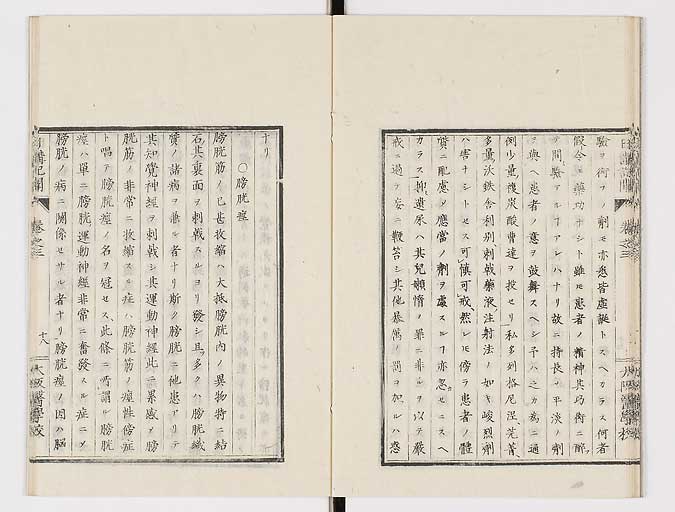 驗ヲ得フノ劑モ亦悉皆虛誕トスヘカラス何者
假令ヒ藥功ナシト雖モ患者ノ精神其功術ニ醉
テ間驗アルフアレハナリ故ニ持長ノ平淡ノ劑
ヲ與ヘ患者ノ意ヲ鼓舞スヘシ予ハ之カ爲ニ通
例少量複炭酸曹達ヲ投セリ私多列格尼涅芫菁
多量沃鉄舎利別刺戟藥液注射法ノ如キ峻烈劑
ハ害ナシトセス可愼可戒然レモ傍ラ患者ノ體
質ニ配慮シ應當ノ劑ヲ處スルフ亦忽セニスヘ
カラス抑遺尿ハ其兒嬾惰ノ罪ニ非ルヲ以テ嚴
戒ニ過テ答ニ鞭笞シ其他暴厲ノ罰ヲ加ルハ惑
ナリ
〇膀胱痙
膀胱筋ノ已甚收縮ハ大抵膀胱內ノ異物特ニ結
石其裏面ヲ刺戟スルヨリ發シ且多クハ膀胱織
質ノ諸病ヲ兼ル者ナリ斯ク膀胱ニ他患アリテ
其知覺神經ヲ刺戟シ其運動神經此ニ累感シ膀
胱筋ノ非常ニ收縮スル症ハ膀胱筋ノ痙性傍症
ト唱テ膀胱痙ノ名ヲ冠セス此條ニ所謂ル膀胱
痙ハ單ニ膀胱運動神經非常ニ奮發スル症ニメ
膀胱ノ病ニ關係セサル者ナリ膀胱痙ノ因ハ腦
卷之三
十八
大阪醫學校